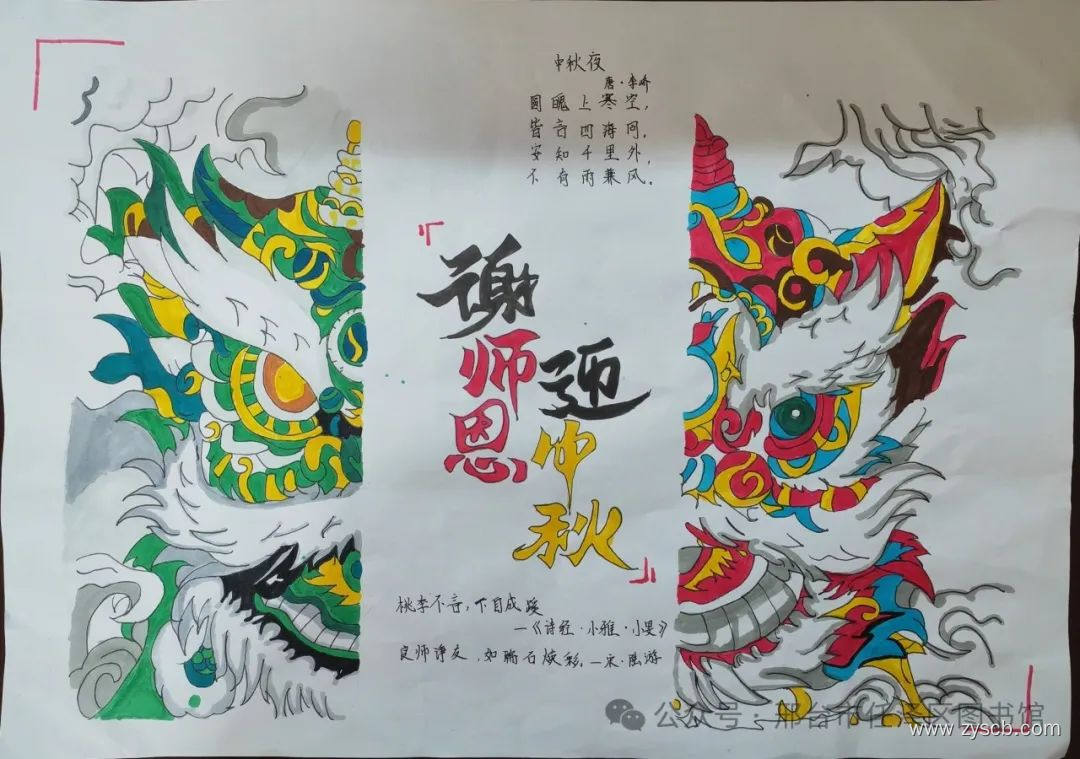 中秋夜
唐·李峤
圆魄上寒空，
皆言四海同。
安知千里外，
不有雨兼风。
谢师恩
迎中秋
桃李不言，下自成蹊
—《诗经·小雅·小旻》
良师诤友，如
石焕彩，—宋·陆游
公众号·邢台市任泽区图书馆
www.zyscb.com